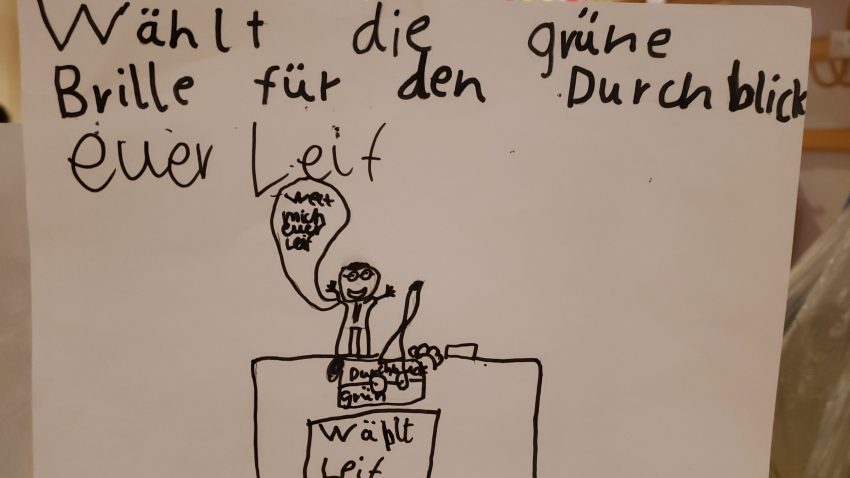 Wählt die grüne
Brille für den Durchblick
euer Leif
Welt
mich
euer
Leif
Durchblick
Grün
Wählt
Leif